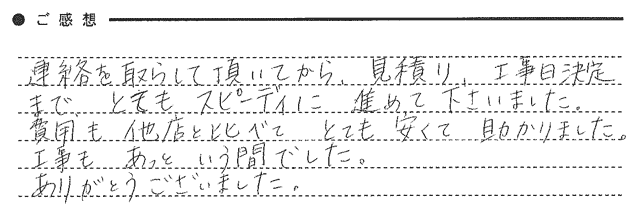 ● ご感想
連絡を取らして頂いてから、見積り、工事日決定
まで とても スピーディに 進めて 下さいました。
費用も 他店と比べて とても 安くて 助かりました。
工事も あっと いう間でした。
ありがとうございました。